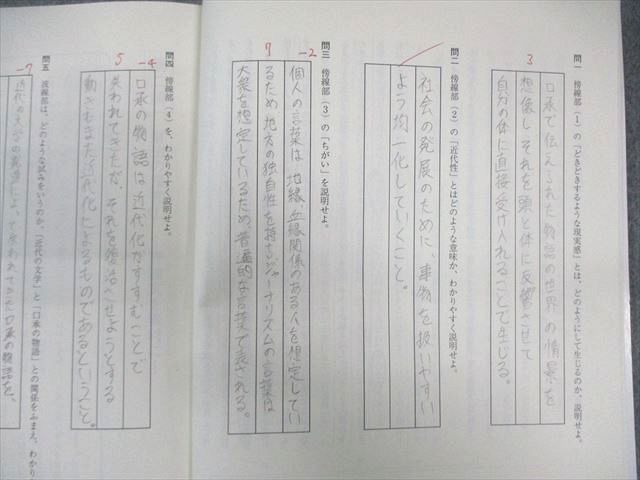 問一 傍線部（1）の「どきどきするような現実感」とは、どのようにして生じるのか、説明せよ。
3
口承で伝えられた物語の世界の情景を
想像し、それを頭と体に反響させて
自分の体に直接受け入れることで生じる。
問二 傍線部（2）の「近代性」とはどのような意味か、わかりやすく説明せよ。
社会の発展のために、事物を扱いやすい
よう均一化していくこと。
問三 傍線部（3）の「ちがい」を説明せよ。
-2
7
個人の言葉は、地縁、血縁関係のある人を想定してい
るため地方の独自性を持ち、ジャーナリズムの言葉は
大衆を想定しているため、普遍的な言葉で表される。
問四 傍線部（4）を、わかりやすく説明せよ。
-4
5
口承の物語は近代化がすすむことで
失われてきたが、それを復活させようとする
動きもまた近代化によるものであるということ。
問五 波線部は、どのような試みをいうのか、「近代の文学」と「口承の物語」との関係をふまえ、わかり
-7
近代の文学の
によって失われてきた口承の物語を、